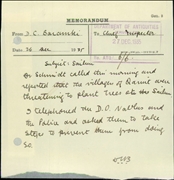 MEMORANDUM
DEPARTMENT OF ANTIQUITIES
From D. C. Baramki To Chief Inspector
Date 26 Dec 1935
Subject: Seilun
Dr Schmidt called this morning and
reported that the villagers of Qariut were
threatening to plant trees at the Seilun
I telephoned the D.O. Nablus and
the Police and asked them to take
steps to prevent them from doing
so.